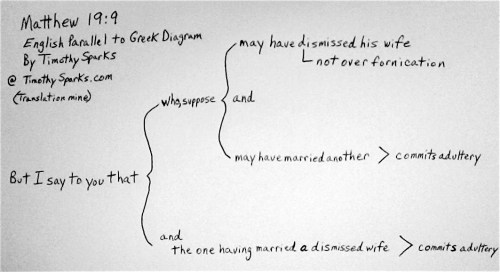 Matthew 19:9
English Parallel to Greek Diagram
By Timothy Sparks
@ TimothySparks.com
(Translation mine)
may have dismissed his wife
not over fornication
who, suppose
and
may have married another > commits adultery
But I say to you that
and
the one having married a dismissed wife > commits adultery